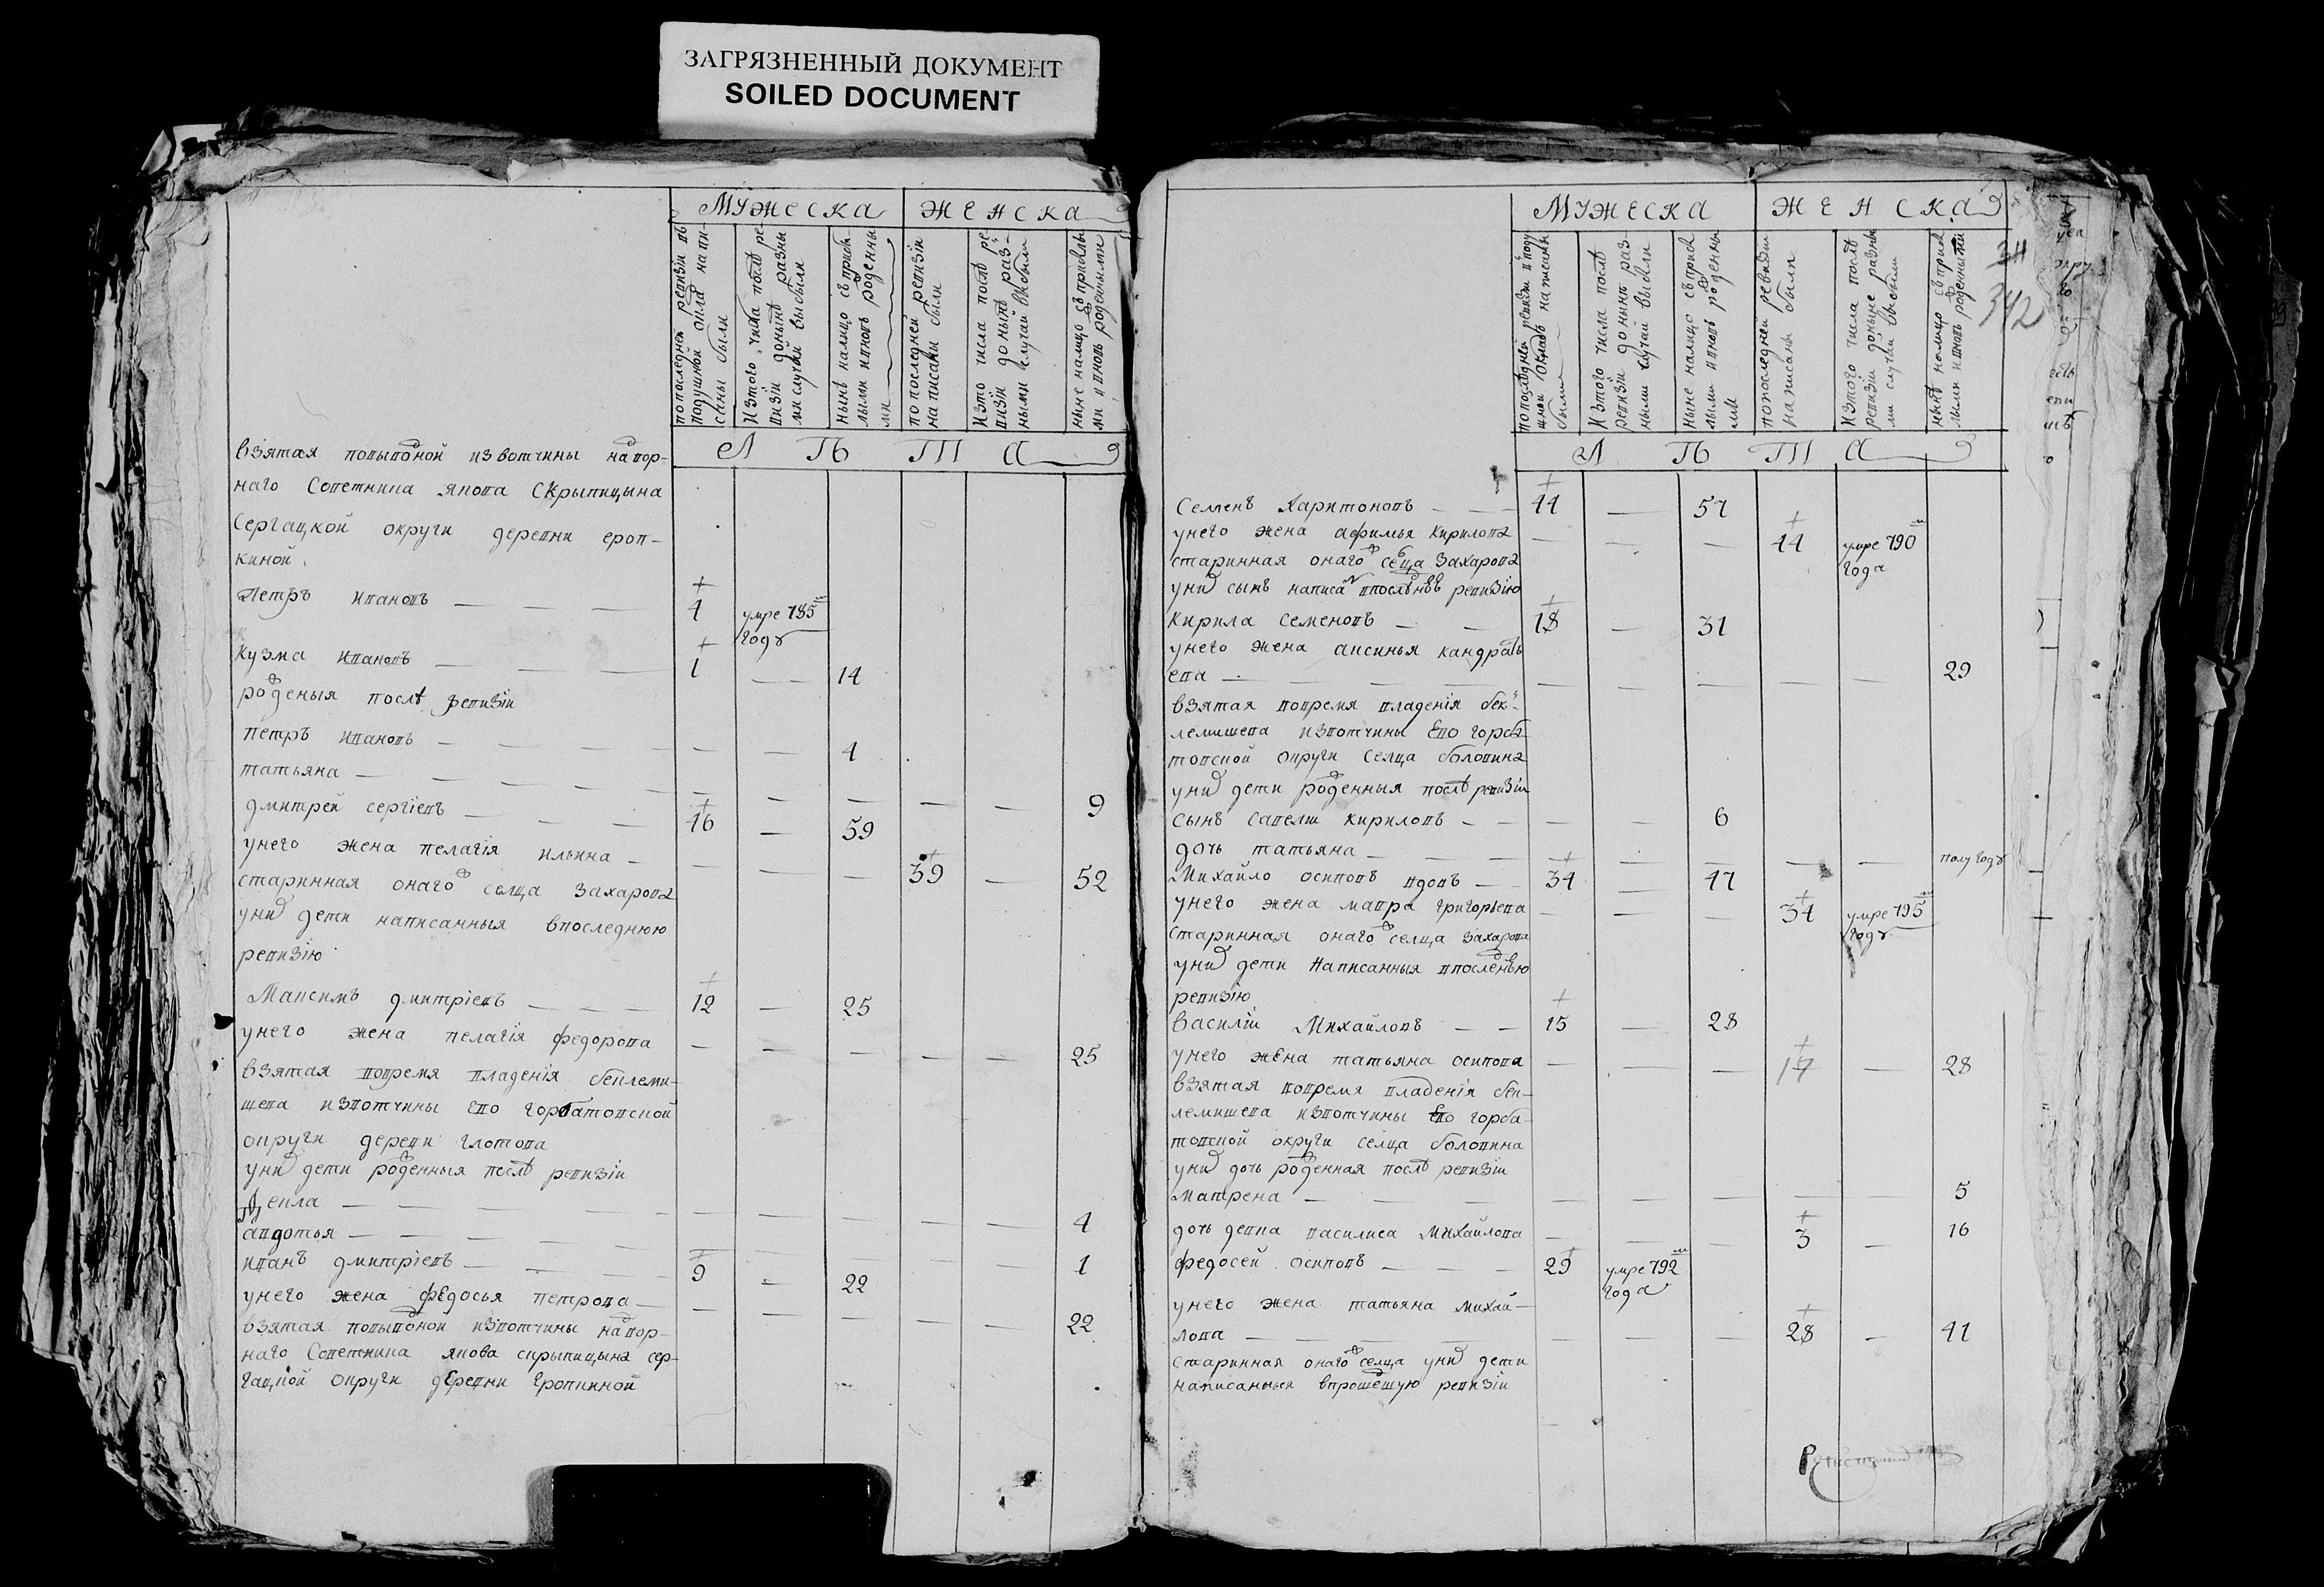 ЗАГРЯЗНЕННЫЙ ДОКУМЕНТ
SOILED DOCUMENT
Мужеска Женска
по последней ревизіи въ подушной оклад написаны были
Изтого числа послѣ ревизіи донынѣ разными случаи выбыли
нынѣ налицо съ прибылыми и вновь рожденными
по последней ревизіи написаны были
Изто числа послѣ ревизіи донынѣ разными случаи выбыли
ныне налицо съ прибылыми и вновь рожденными
Лѣта
взятая повыводной извотчины надвор-
наго Советника якова Скрыпицына
Сергацкой округи деревни ероп-
киной
Петръ ивановъ — — — 4 умре 785 году
Кузма ивановъ — — — 1 — 14
рожденыя послѣ ревизіи
петръ ивановъ — — — — — 4
татьяна — — — — — — — — 9
дмитрей сергіевъ — — — 46 — 59
унего жена пелагія ильина — — — — 39 — 52
старинная онагожъ селца захарова
унихъ дети написанныя впоследнюю
ревизію
Максимъ дмитріевъ — — — 12 — 25
унего жена пелагія федорова — — — — — 25
взятая вовремя владенія беклеми-
шева извотчины ево горбатовской
округи деревни глотова
унихъ дети рожденныя послѣ ревизіи
Фекла — — — — — — — — — 4
авдотья — — — — — — — 1
иванъ дмитріевъ — — — 9 — 22
унего жена федосья петрова — — — — — — 22
взятая повыводной извотчины надвор-
наго Советника якова скрыпицына сер-
гацкой округи деревни Еропкиной
Мужеска Женска
342
по последней ревизіи в подушной окладъ написаны были
Изтого числа послѣ ревизіи донынѣ разными случаи выбыли
ныне налицо съ прибылыми и вновь рожденными
по последней ревизіи написаны были
Изтого числа послѣ ревизіи доныне разными случаи выбыли
нынѣ налицо съ прибылыми и вновь рожденными
Лѣта
Семенъ Харитоновъ — — — 44 — 57
унего жена афимья кирилова — — — 44 умре 790 года
старинная онагожъ селца захарова
унихъ сынъ написанъ впослѣднѣю ревизію
кирила семеновъ — — 18 — 31
унего жена аксинья кандрать
ева — — — — — — — — — 29
взятая вовремя владенія бек-
лемишева извотчины Ево горба-
товской округи селца боловина
унихъ дети рожденныя послѣ ревизіи
сынъ савелий кириловъ — — — — 6
дочь татьяна — — — — — — — — полугоду
Михайло осиповъ вдовъ — — 34 — 47
унего жена мавра григорьева — — — 34 умре 795 году
старинная онагожъ селца захарова
унихъ дети написанныя впоследнѣю
ревизію
василій Михайловъ — — 15 — 28
унего жена татьяна осипова — — — 17 — 28
взятая вовремя владенія бек-
лемишева извотчины Ево горба-
товской округи селца боловина
унихъ дочь рожденная послѣ ревизіи
матрена — — — — — — — 5
дочь девка василиса михайлова — — — 3 — 16
федосей осиповъ — — — 29 умре 792 года
унего жена татьяна михай-
лова — — — — — — 28 — 41
старинная онагожъ селца унихъ дети
написанныя впрошедшую ревизіи